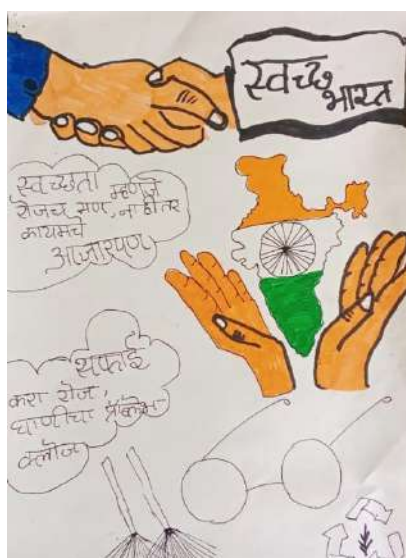 स्वच्छ
भारत
स्वच्छता म्हणजे
रोजच सण, नाहीतर
कायमचे
आजारपण
सफाई
करा रोज,
घाणीचा प्रॉब्लेम
क्लोज